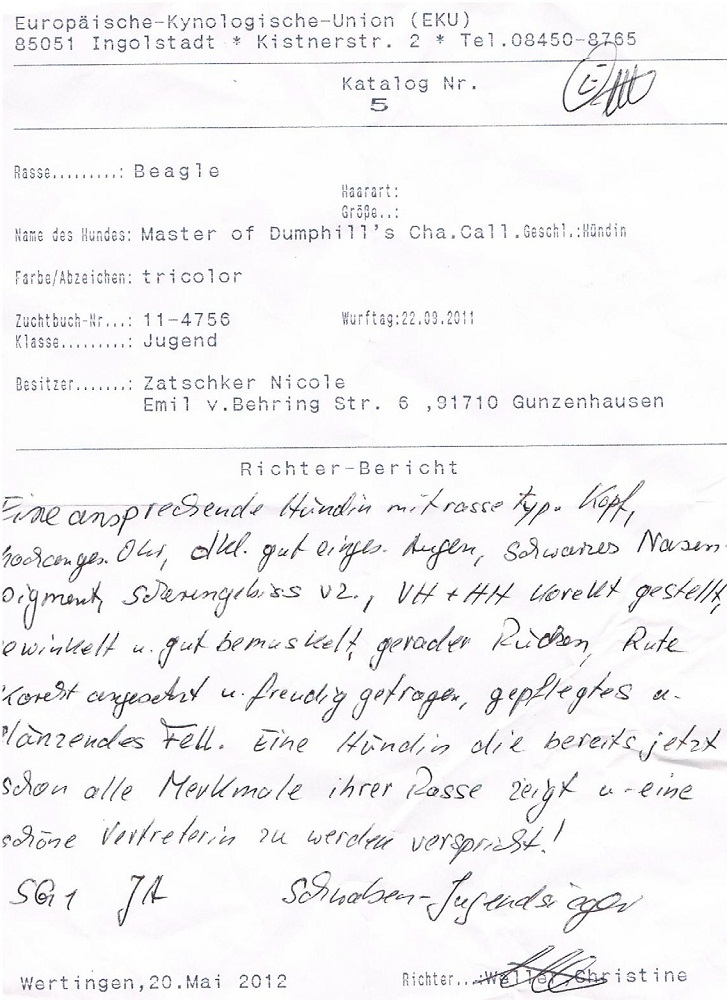 Europäische-Kynologische-Union (EKU)
85051 Ingolstadt * Kistnerstr. 2 * Tel.08450-8765
Katalog Nr.
5
Rasse.........: Beagle
Haarart:
Größe..:
Name des Hundes: Master of Dumphill's Cha.Call. Geschl.:Hündin
Farbe/Abzeichen: tricolor
Zuchtbuch-Nr...: 11-4756 Wurftag:22.09.2011
Klasse.........: Jugend
Besitzer.......: Zatschker Nicole
Emil v.Behring Str. 6 ,91710 Gunzenhausen
Richter-Bericht
Eine ansprechende Hündin mit rasse typ. Kopf,
hochanges. Ohr, dkl. gut einges. Augen, schwarzes Nasen-
pigment, Scherengebiss vz., VH + HH korekt gestellt,
gewinkelt u. gut bemuskelt, gerader Rücken, Rute
korekt angesetzt u. freudig getragen, gepflegtes u.
glänzendes Fell. Eine Hündin die bereits jetzt
schon alle Merkmale ihrer Rasse zeigt u. eine
schöne Vertreterin zu werden verspricht!
SG1 JA Schwaben-Jugendsieger
Wertingen,20.Mai 2012 Richter...:Weller,Christine